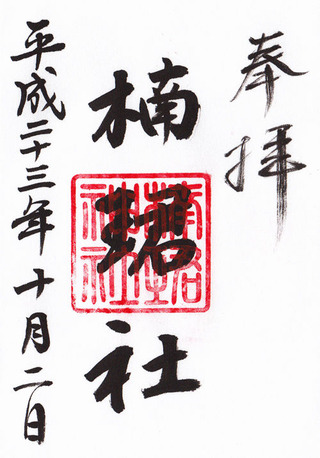 奉拝
楠珺社
平成二十三年十月二日